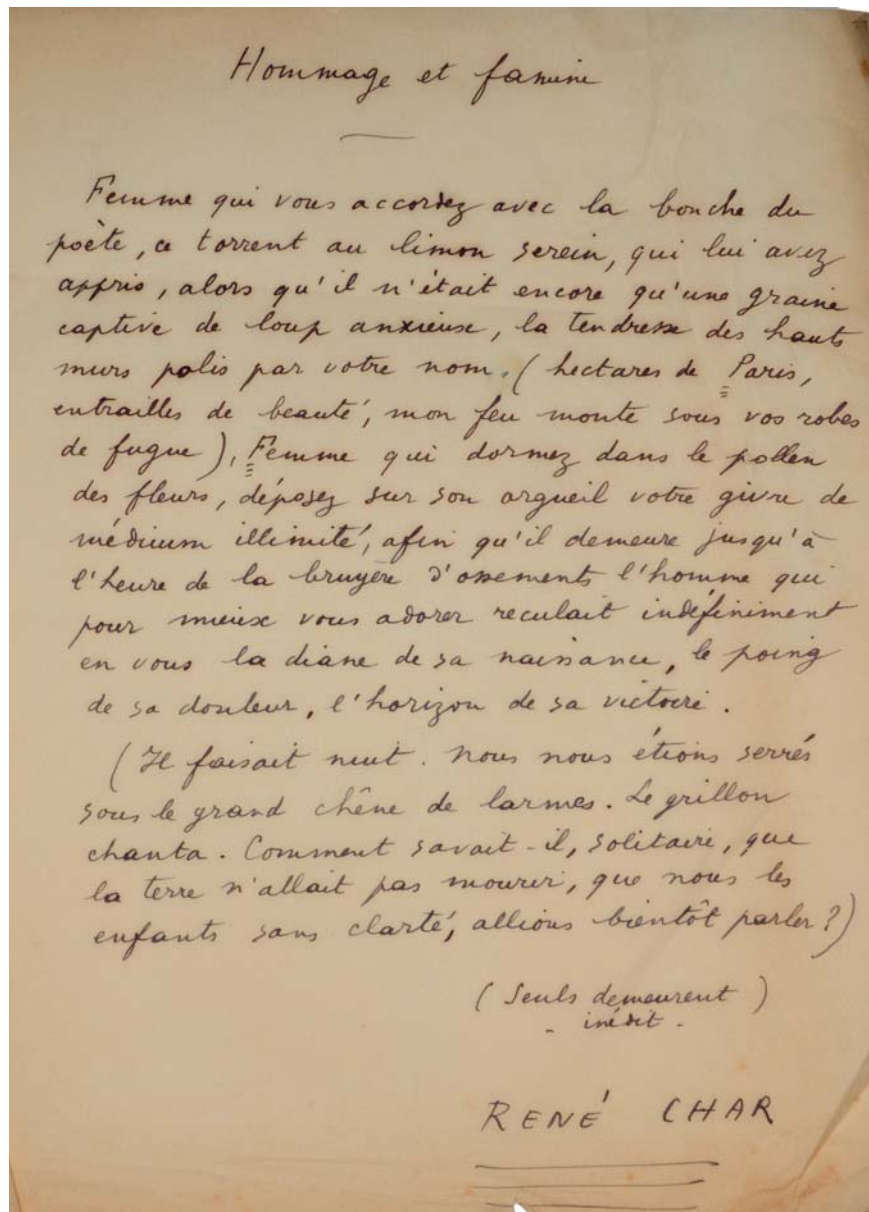 Hommage et famine
Femme qui vous accordez avec la bouche du
poète, ce torrent au limon serein, qui lui avez
appris, alors qu'il n'était encore qu'une graine
captive de loup anxieuse, la tendresse des hauts
murs polis par votre nom. (hectares de Paris,
entrailles de beauté, mon feu monte sous vos robes
de fugue), Femme qui dormez dans le pollen
des fleurs, déposez sur son orgueil votre givre de
médium illimité, afin qu'il demeure jusqu'à
l'heure de la bruyère d'ossements l'homme qui
pour mieux vous adorer reculait indéfiniment
en vous la diane de sa naissance, le poing
de sa douleur, l'horizon de sa victoire.
(Il faisait nuit. Nous nous étions serrés
sous le grand chêne de larmes. Le grillon
chanta. Comment savait-il, solitaire, que
la terre n'allait pas mourir, que nous les
enfants sans clarté, allions bientôt parler?)
(Seuls demeurent)
- inédit -
RENÉ CHAR